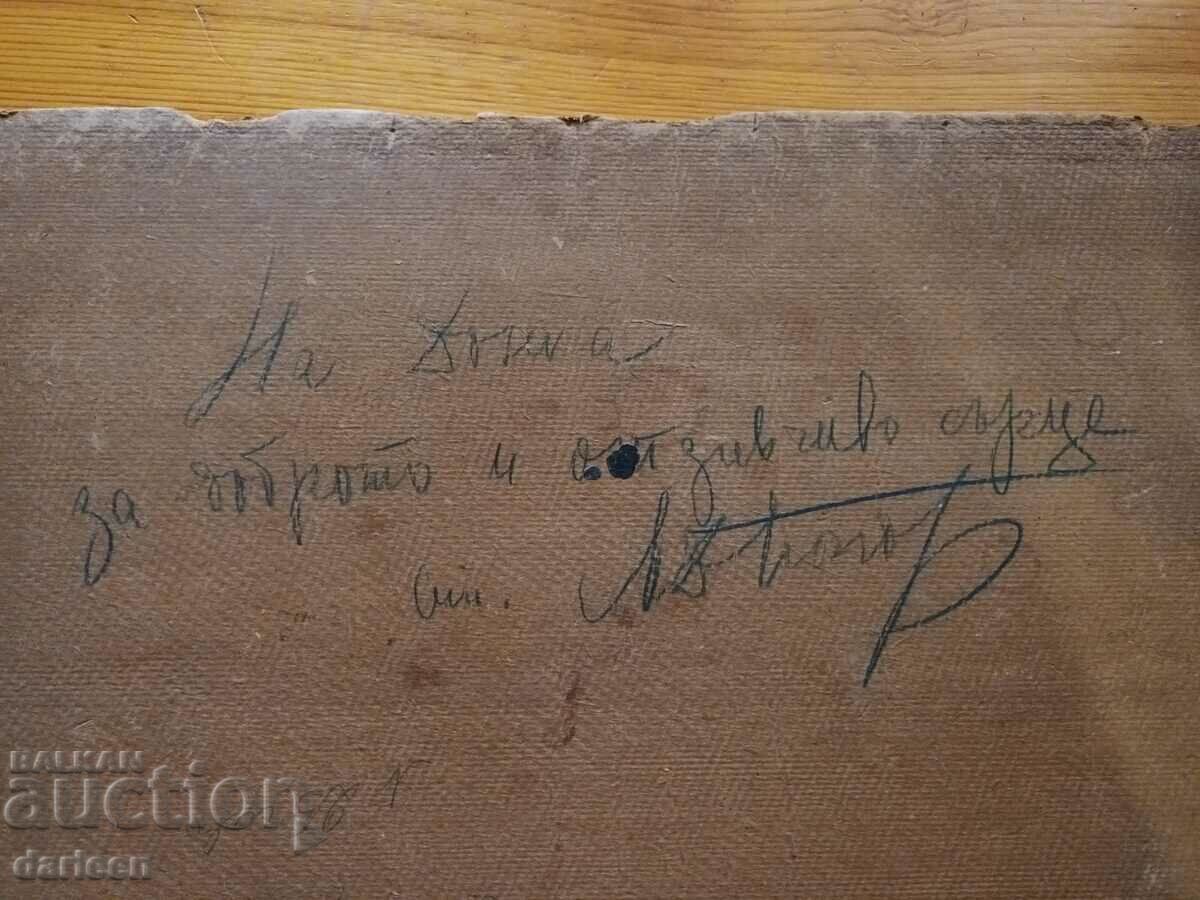 На Донка
за доброто и отзивчиво сърце
от.
BALKAN
auction
darleen